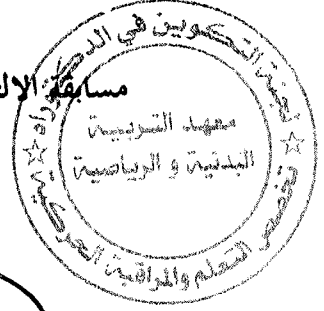 مسابقة الال
لجنة التكوين في الدكتوراه
معهد التربية
البدنية و الرياضية
تخصص التعلم والمراقبة الحركية